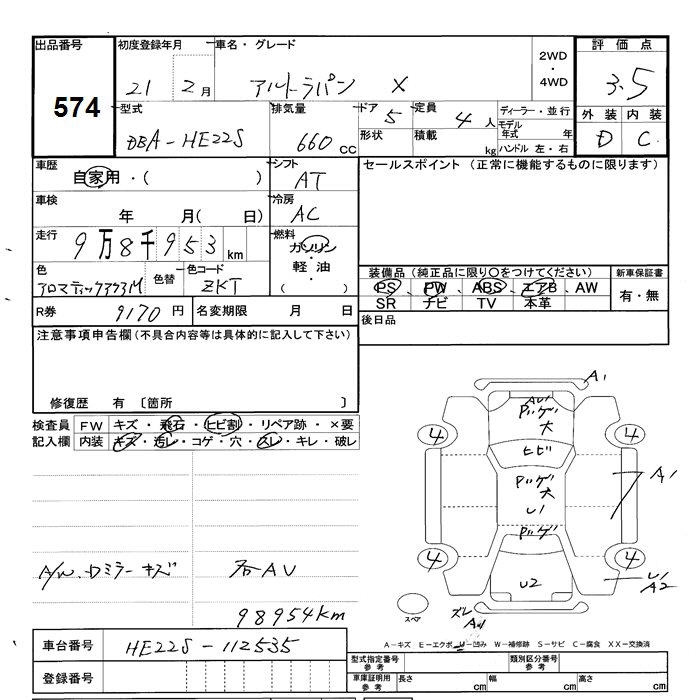 出品番号
574
初度登録年月
21 2月
車名・グレード
アルトラパン X
2WD
・
4WD
評価点
3.5
外装 内装
D C
型式
DBA-HE22S
排気量
660cc
ドア
5
形状
定員
4人
積載
kg
ディーラー・並行
モデル
年式 年
ハンドル 左・右
車歴
自家用・( )
シフト
AT
セールスポイント (正常に機能するものに限ります)
車検
年 月( 日)
冷房
AC
走行
9万8千953km
燃料
ガソリン
軽・油
( )
色
色替
色コード
ZKT
装備品(純正品に限り○をつけてください)
PS PW ABS エアB AW
SR ナビ TV 本革
新車保証書
有・無
R券
9170円
名変期限 月 日
後日品
注意事項申告欄(不具合内容等は具体的に記入して下さい)
修復歴 有〔箇所 〕
検査員
記入欄
FW キズ・飛石・ヒビ割・リペア跡・×要
内装 キズ・汚レ・コゲ・穴・スレ・キレ・破レ
A1
AU1
ハゲ
大
4
4
ヒビ
ハゲ
大
U1
ハゲ
A1
4
4
U2
U1
A2
ズレ
スペア
ミラーキズ
AU
98954km
A-キズ E-エクボ U-凹み W-補修跡 S-サビ C-腐食 XX-交換済
車台番号
HE22S-112535
登録番号
型式指定番号
参考
類別区分番号
参考
車庫証明用
参考
長さ cm
幅 cm
高さ cm